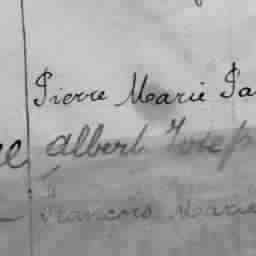 Pierre Marie Pa
albert Josep
François Marie